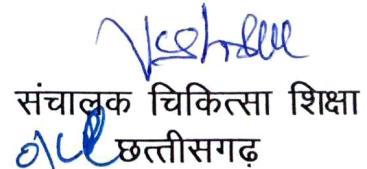 संचालक चिकित्सा शिक्षा
छत्तीसगढ़